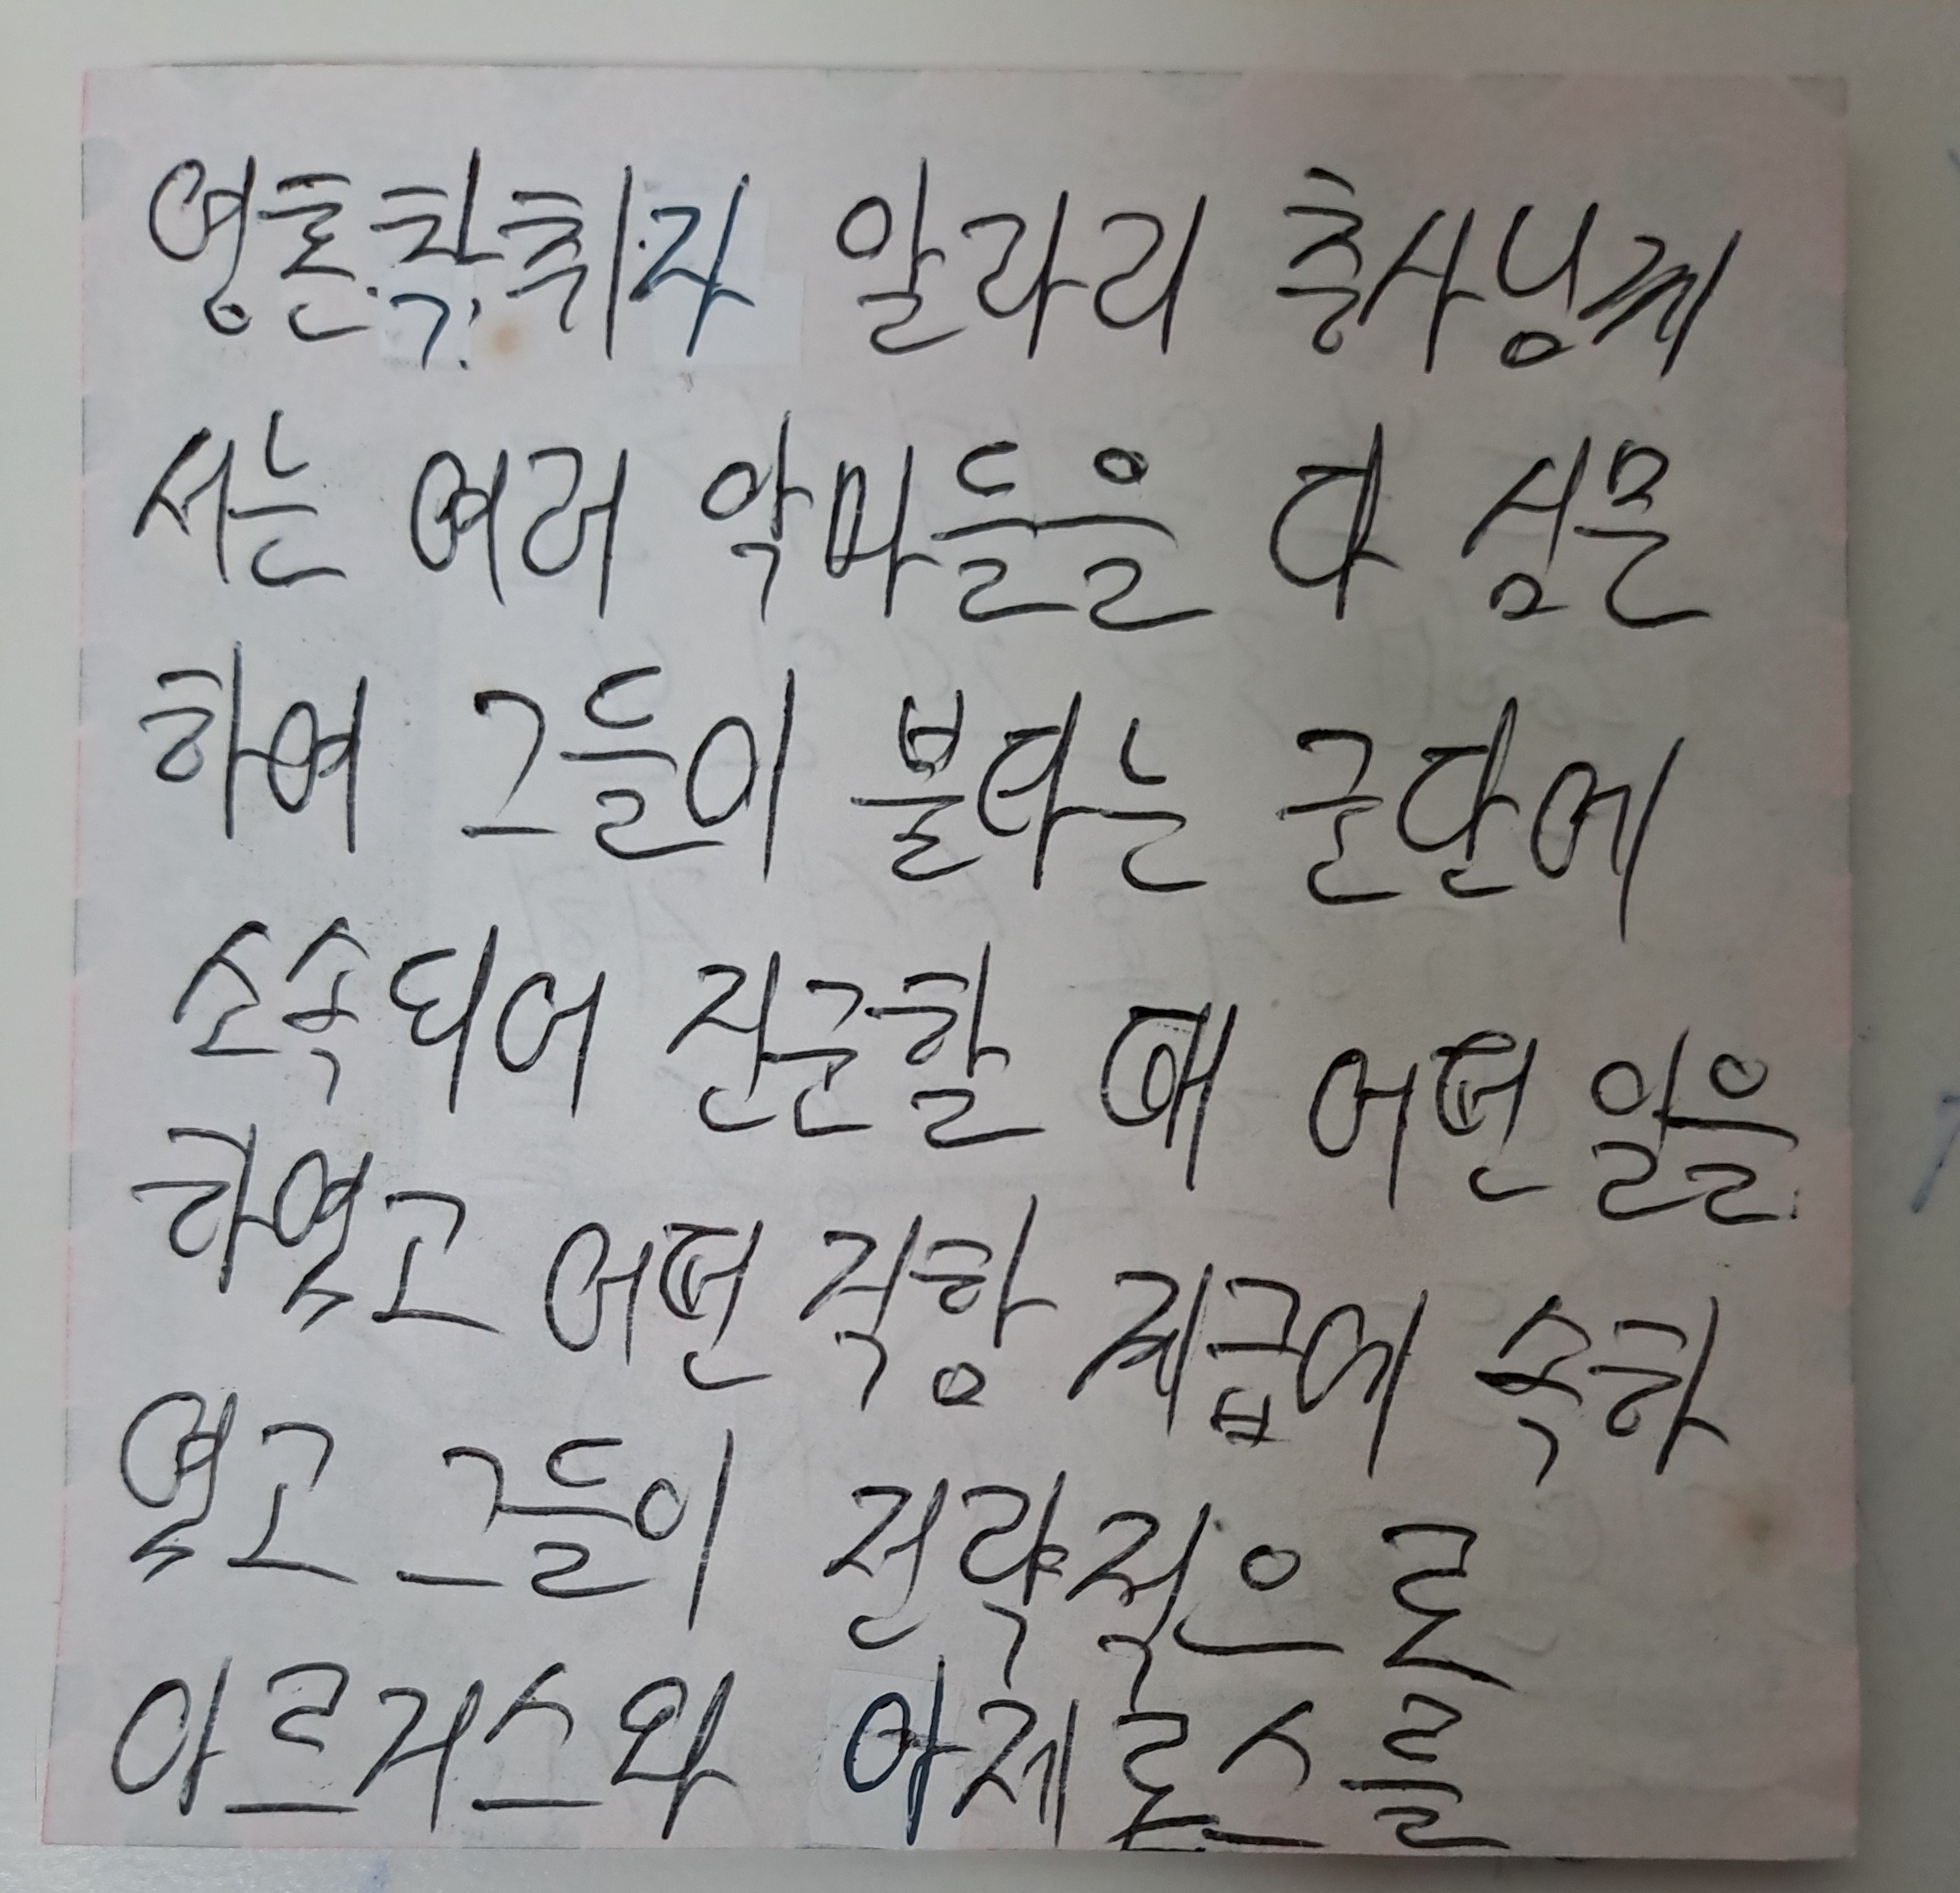 영혼착취자 알라리 흑사님께
서는 여러 악마들을 다 심문
하여 그들이 불타는 군단에
소속되어 진군할 때 어떤 일을
하였고 어떤 직항 계급에 속하
였고 그들이 전략적으로
아르거스와 아제로스를